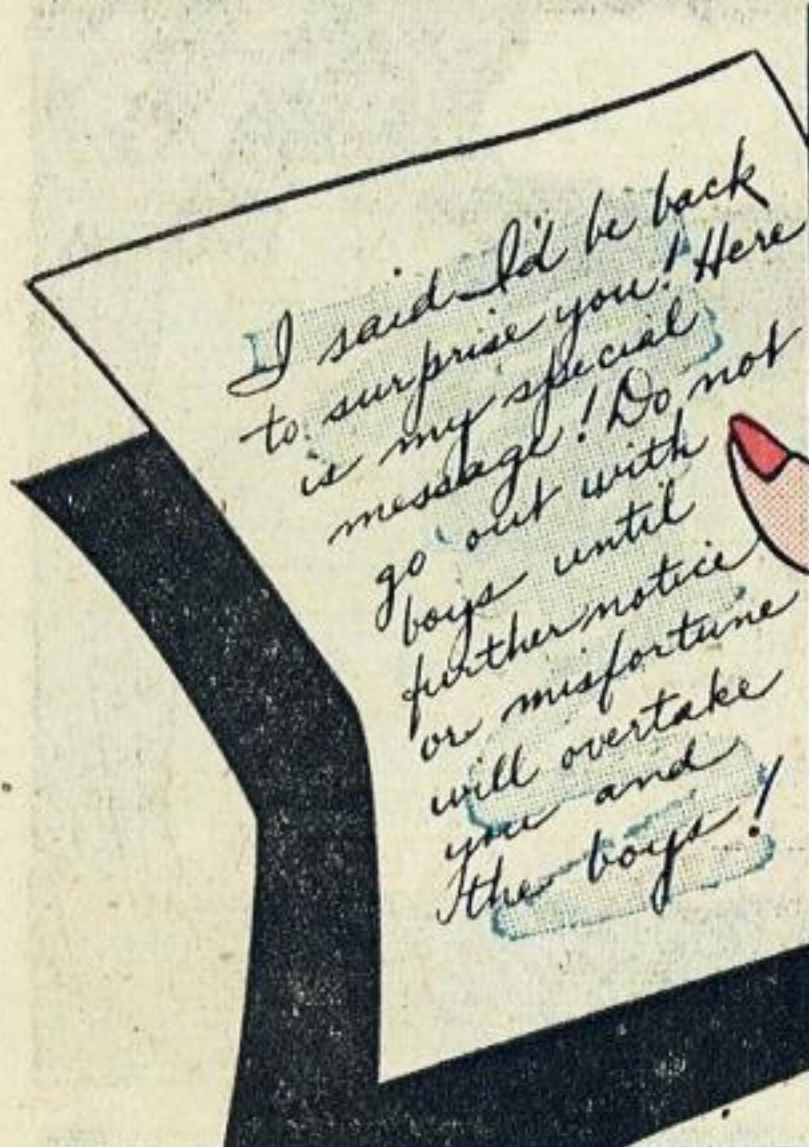 I said I'd be back
to surprise you! Here
is my special
message! Do not
go out with
boys until
further notice
or misfortune
will overtake
you and
the boys!